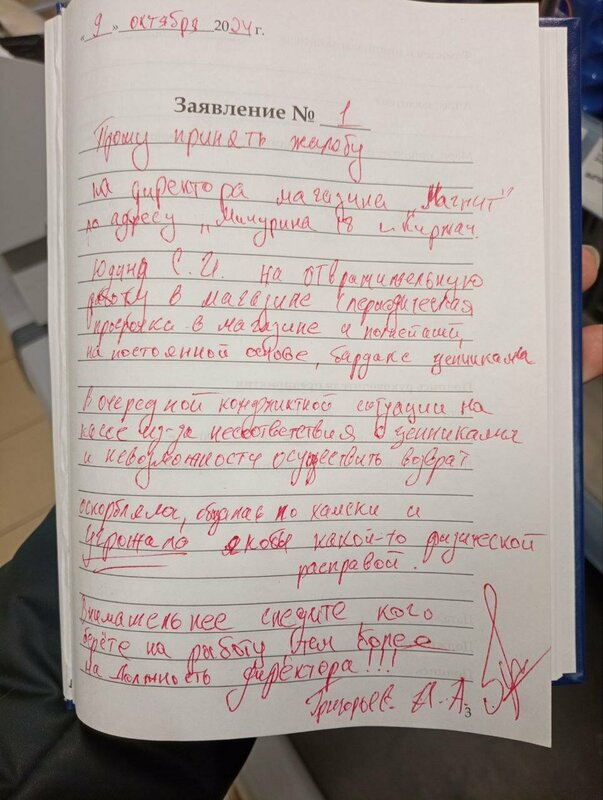 « 9 » октября 2024 г.
Заявление № 1
Прошу принять жалобу
на директора магазина „Магнит"
по адресу „Мичурина 18 г. Киржач.
С. И. на отвратительную
работу в магазине (периодическая
просрочка в магазине и
на постоянной основе, бардак с ценниками
В очередной конфликтной ситуации на
кассе из-за несоответствия с ценниками
и невозможности осуществить возврат
оскорбляла, по хамски и
угрожала якобы какой-то физической
расправой.
Внимательнее следите кого
берёте на работу (тем более
на должность директора!!!
Григорьев А. А.
3